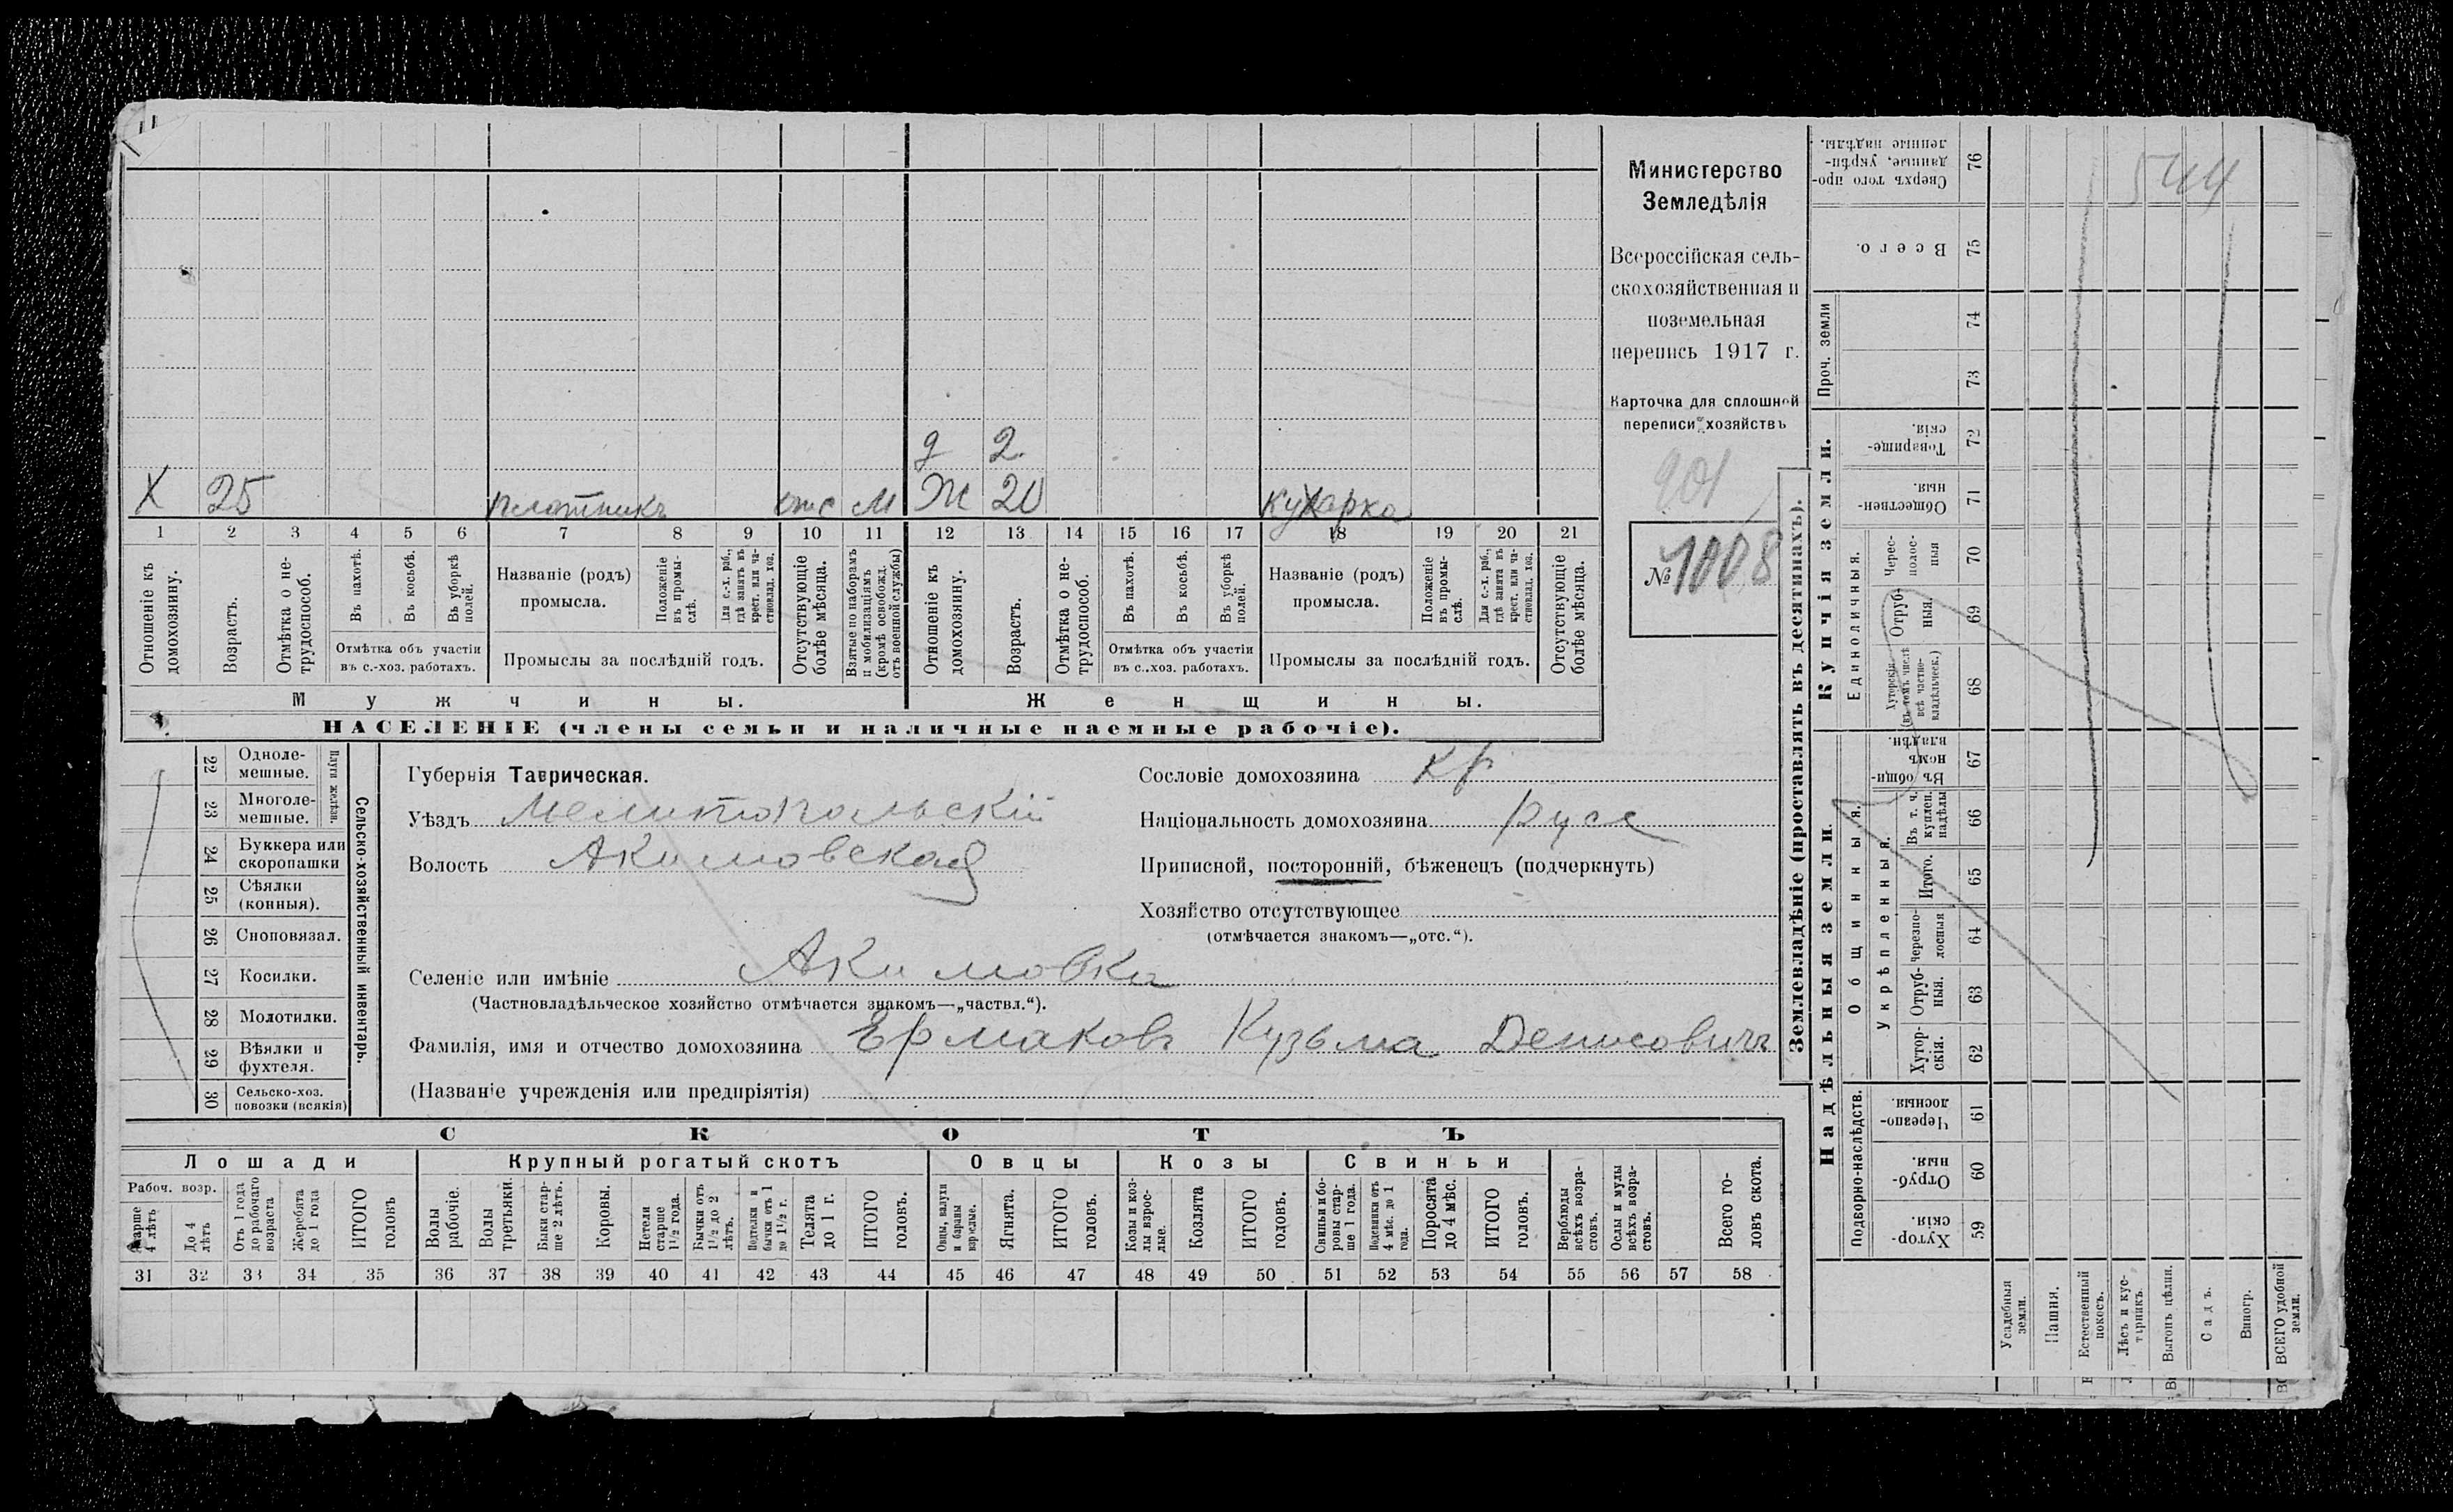 Министерство
Земледѣлія
Всероссійская сель-
скохозяйственная и
поземельная
перепись 1917 г.
Карточка для сплошной
переписи хозяйствъ
901
№ 1008
544
д 2
Х 25 плотникъ отс М Ж 20 кухарка
1 2 3 4 5 6 7 8 9 10 11 12 13 14 15 16 17 18 19 20 21
Отношеніе къ домохозяину.
Возрастъ.
Отмѣтка о не-трудоспособ.
Въ пахотѣ.
Въ косьбѣ.
Въ уборкѣ полей.
Отмѣтка объ участіи
въ с.-хоз. работахъ.
Названіе (родъ)
промысла.
Положеніе въ промы-слѣ.
Для с.-х. раб., гдѣ занятъ въ крест. или ча-стновлад. хоз.
Промыслы за послѣдній годъ.
Отсутствующіе болѣе мѣсяца.
Взятые по наборамъ и мобилизаціямъ (кромѣ освобожд. отъ военной службы)
Отношеніе къ домохозяину.
Возрастъ.
Отмѣтка о не-трудоспособ.
Въ пахотѣ.
Въ косьбѣ.
Въ уборкѣ полей.
Отмѣтка объ участіи
въ с..хоз. работахъ.
Названіе (родъ)
промысла.
Положеніе въ промы-слѣ.
Для с.-х. раб., гдѣ занята въ крест. или ча-стновлад. хоз.
Промыслы за послѣдній годъ.
Отсутствующіе болѣе мѣсяца.
Мужчины. Женщины.
НАСЕЛЕНІЕ (члены семьи и наличные наемные рабочіе).
Сельско-хозяйственный инвентарь.
Плуги желѣзн.
22 Одноле-мешные.
23 Многоле-мешные.
24 Буккера или скоропашки
25 Сѣялки (конныя).
26 Сноповязал.
27 Косилки.
28 Молотилки.
29 Вѣялки и фухтеля.
30 Сельско-хоз. повозки (всякія)
Губернія Таврическая.
Уѣздъ Мелитопольскій
Волость Акимовская
Сословіе домохозяина кр
Національность домохозяина русс
Приписной, посторонній, бѣженецъ (подчеркнуть)
Хозяйство отсутствующее
(отмѣчается знакомъ—„отс.“).
Селеніе или имѣніе Акимовка
(Частновладѣльческое хозяйство отмѣчается знакомъ—„частвл.“).
Фамилія, имя и отчество домохозяина Ермаковъ Кузьма Денисовичъ
(Названіе учрежденія или предпріятія)
СКОТЪ
Лошади Крупный рогатый скотъ Овцы Козы Свиньи
Рабоч. возр.
Старше 4 лѣтъ
До 4 лѣтъ
Отъ 1 года до рабочаго возраста
Жеребята до 1 года
ИТОГО головъ
Волы рабочіе.
Волы третьяки.
Быки стар-ше 2 лѣтъ.
Коровы.
Нетели старше 1½ года.
Бычки отъ 1½ до 2 лѣтъ.
Подтелки и бычки отъ 1 до 1½ г.
Телята до 1 г.
ИТОГО головъ.
Овцы, валухи и бараны взрослые.
Ягнята.
ИТОГО головъ.
Козы и коз-лы взрос-лые.
Козлята
ИТОГО головъ.
Свиньи и бо-ровы стар-ше 1 года.
Подсвинки отъ 4 мѣс. до 1 года.
Поросята до 4 мѣс.
ИТОГО головъ.
Верблюды всѣхъ возра-стовъ.
Ослы и мулы всѣхъ возра-стовъ.
Всего го-ловъ скота.
31 32 33 34 35 36 37 38 39 40 41 42 43 44 45 46 47 48 49 50 51 52 53 54 55 56 57 58
Землевладѣніе (проставлять въ десятинахъ).
Надѣльныя земли. Купчія земли.
Проч. земли
Подворно-наслѣдств.
Общинныя.
Укрѣпленныя.
Единоличныя.
Хутор-скія. 59
Отруб-ныя. 60
Черезпо-лосныя. 61
Хутор-скія. 62
Отруб-ныя. 63
черезпо-лосныя 64
Итого. 65
Въ т. ч. куплен. надѣлы 66
Въ общи-номъ владѣн. 67
Хуторскія (въ томъ числѣ всѣ частно-владѣльческ.) 68
Отруб-ныя. 69
Черес-полос-ныя 70
Обществен-ныя. 71
Товарище-скія. 72
73
74
Всего. 75
Сверхъ того про-данные, укрѣп-ленные надѣлы. 76
Усадебныя земли.
Пашня.
Естественный покосъ.
Лѣсъ и кус-тарникъ.
Выгонъ цѣлин.
Садъ.
Виногр.
ВСЕГО удобной земли.